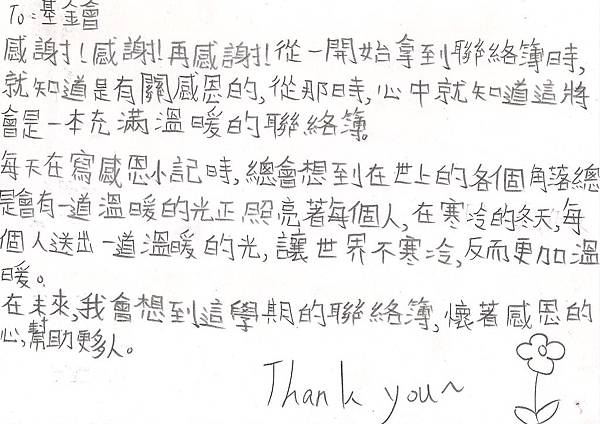 To:基金會
感謝!感謝!再感謝!從一開始拿到聯絡簿時,
就知道是有關感恩的,從那時,心中就知道這將
會是一本充滿溫暖的聯絡簿。
每天在寫感恩小記時,總會想到在世上的各個角落總
是會有一道溫暖的光正照亮著每個人,在寒冷的冬天,每
個人送出一道溫暖的光,讓世界不寒冷,反而更加溫
暖。
在未來,我會想到這學期的聯絡簿,懷著感恩的
心,幫助更多人。
Thank you~